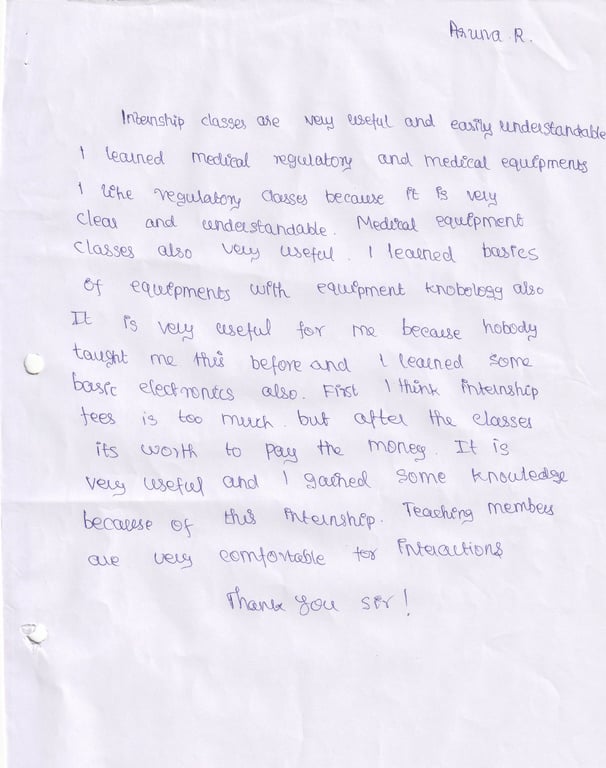 Aruna R.
Internship classes are very useful and easily understandable
I learned medical regulatory and medical equipments
I like regulatory classes because it is very
clear and understandable. Medical equipment
classes also very useful. I learned basics
of equipments with equipment knobology also
It is very useful for me because nobody
taught me this before and I learned some
basic electronics also. First I think internship
fees is too much. but after the classes
its worth to pay the money. It is
very useful and I gained some knowledge
because of this internship. Teaching members
are very comfortable for interactions
Thank you sir!